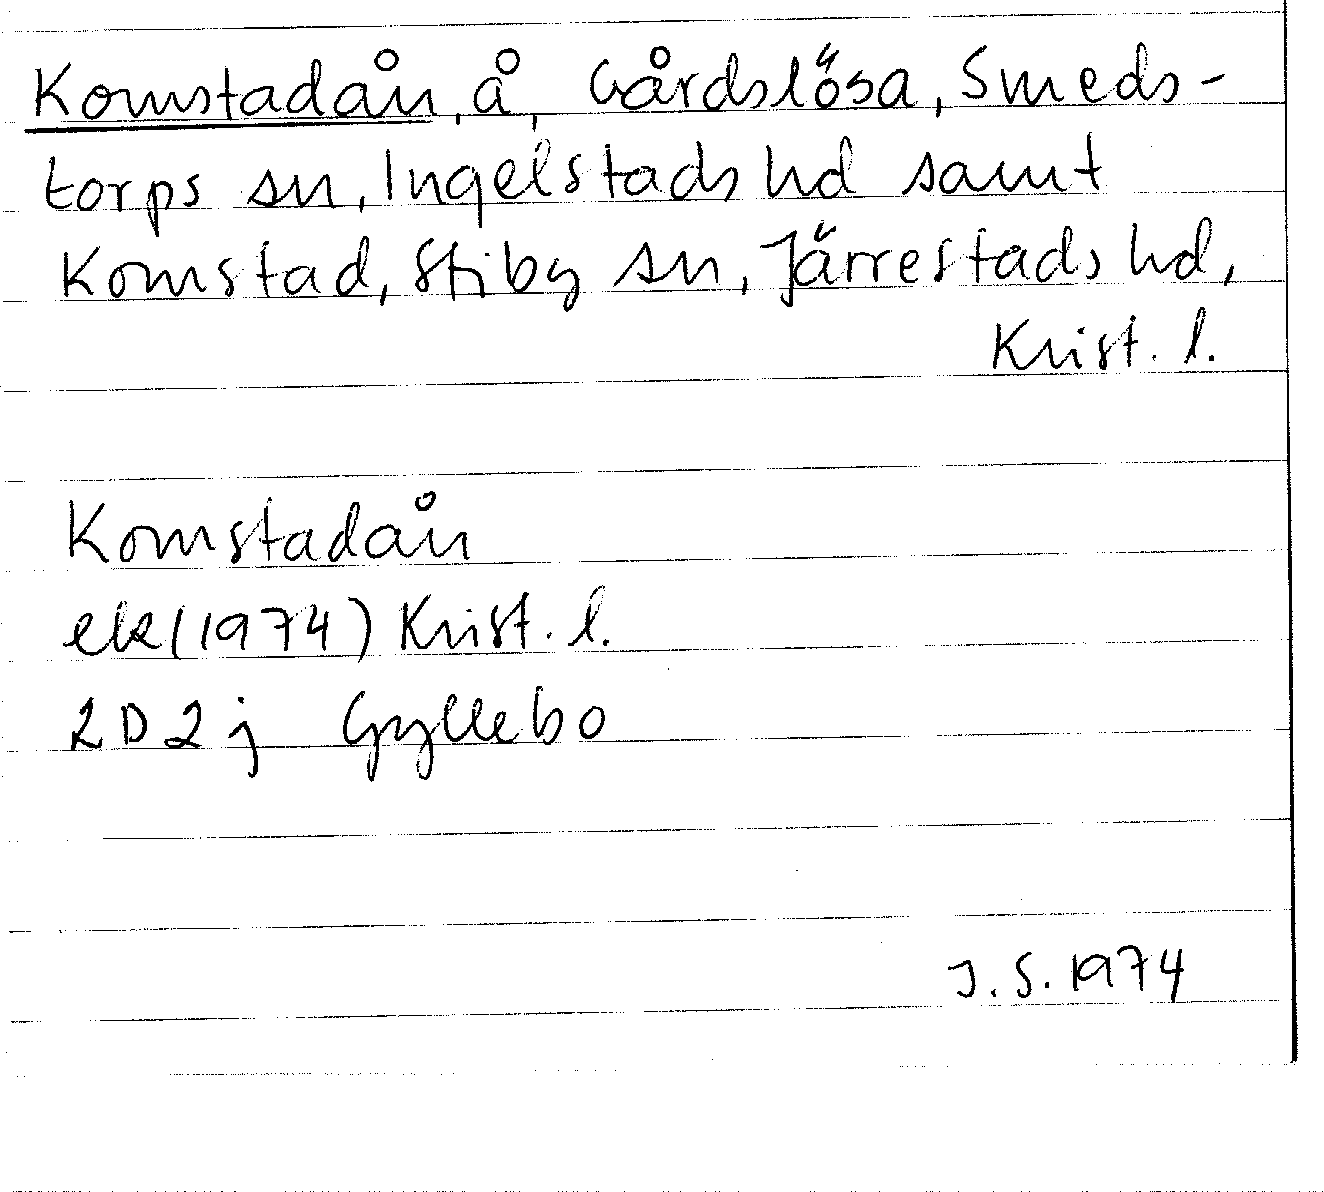 Komstadån, å, Gårdslösa, Smeds-
torps sn, Ingelstads hd samt
Komstad, Stiby sn, Järrestads hd,
Krist. l.
Komstadån
ek (1974) Krist. l.
2D2j Gyllebo
J.S. 1974